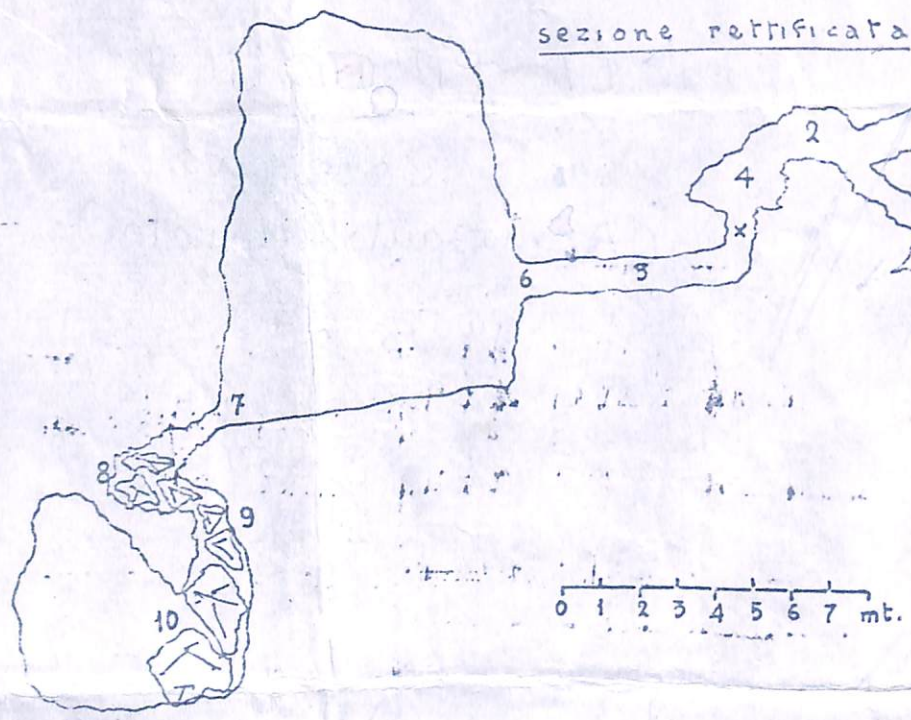 sezione rettificata
2
4
x
5
6
7
8
9
10
0 1 2 3 4 5 6 7 mt.